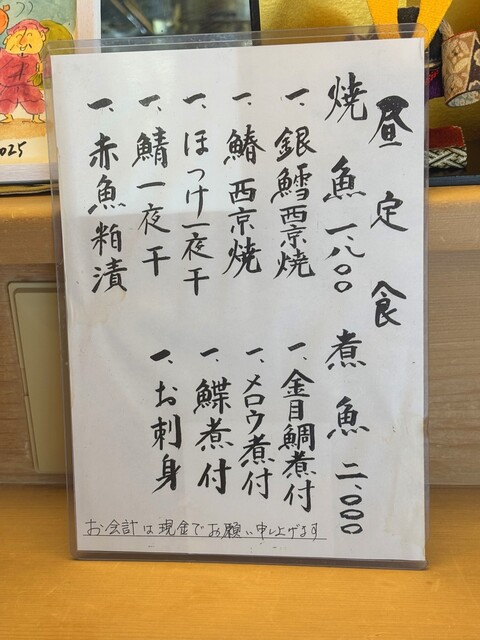 昼定食
焼魚 一、八〇〇
一、銀鱈西京焼
一、鰆西京焼
一、ほっけ一夜干
一、鯖一夜干
一、赤魚粕漬
煮魚 二、〇〇〇
一、金目鯛煮付
一、メロウ煮付
一、鰈煮付
一、お刺身
お会計は現金でお願い申し上げます
2025